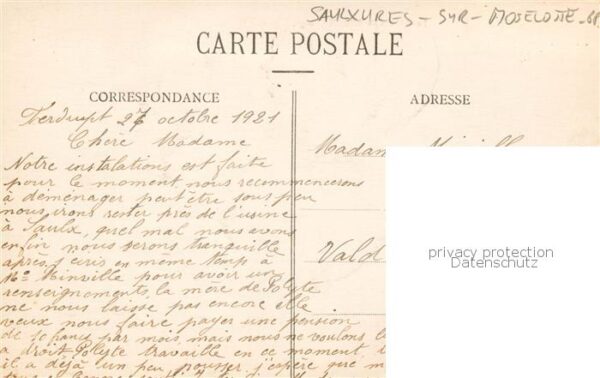 SAULXURES-SUR-MOSELOTTE-88
CARTE POSTALE
CORRESPONDANCE
ADRESSE
Ferdrupt 27 octobre 1921
Chère Madame
Notre instalations est faite
pour le moment nous recommencerons
à déménager peut être sous peu
nous irons rester près de l'usine
à Saulx, quel mal nous avons
enfin nous serons tranquille
après j'ecris en même temps à
pour avoir un
renseignements, la mère de Polyte
ne nous laisse pas encore elle
veux nous faire payer une pension
de 10 francs par mois, mais nous ne voulons
a droit Polyte travaille en ce moment
il a déjà un peu pousser j'espère que
Madame
Vald
privacy protection
Datenschutz